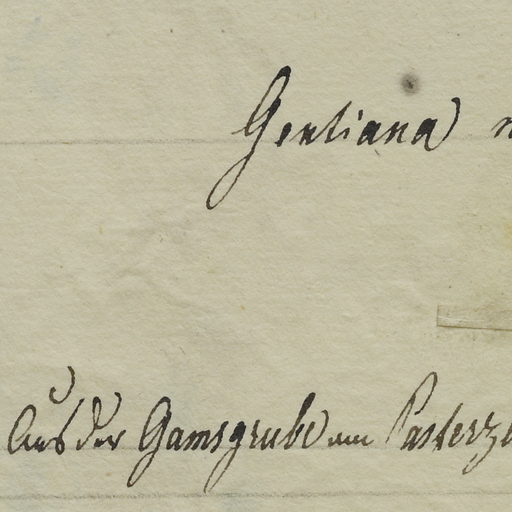 Gentiana n
Aus der Gamsgrube am Pasterze